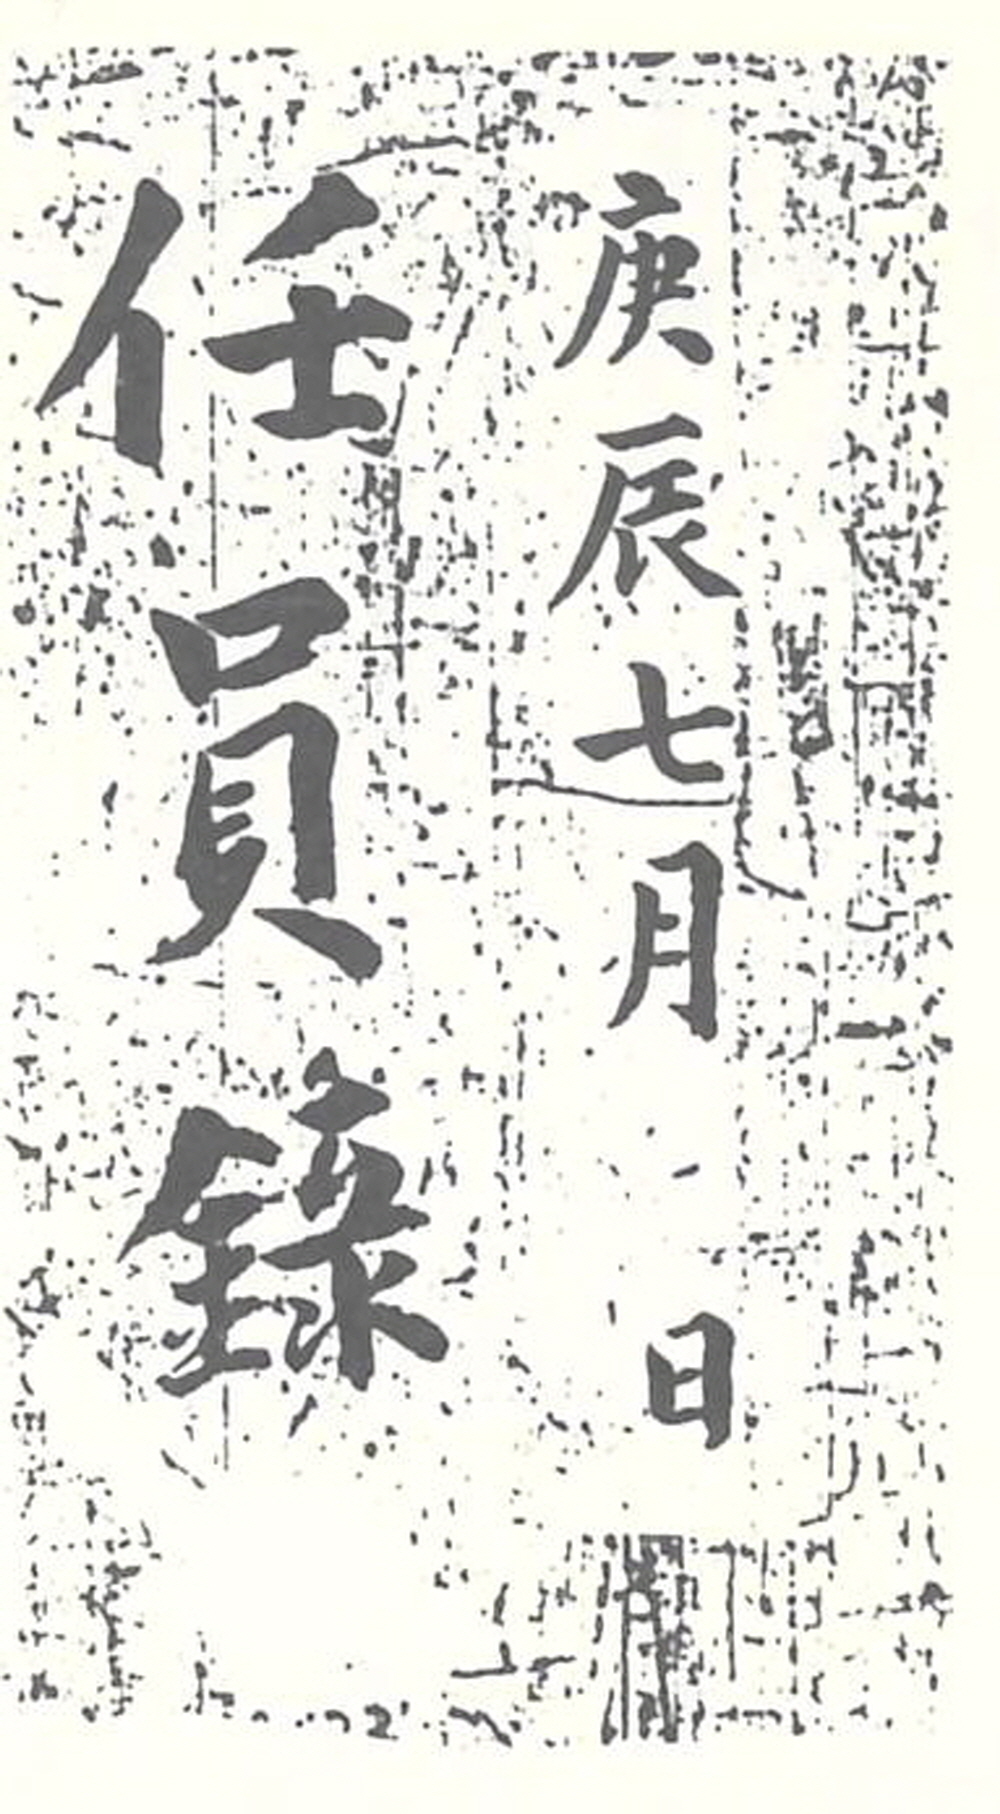 庚辰七月 日
任員錄